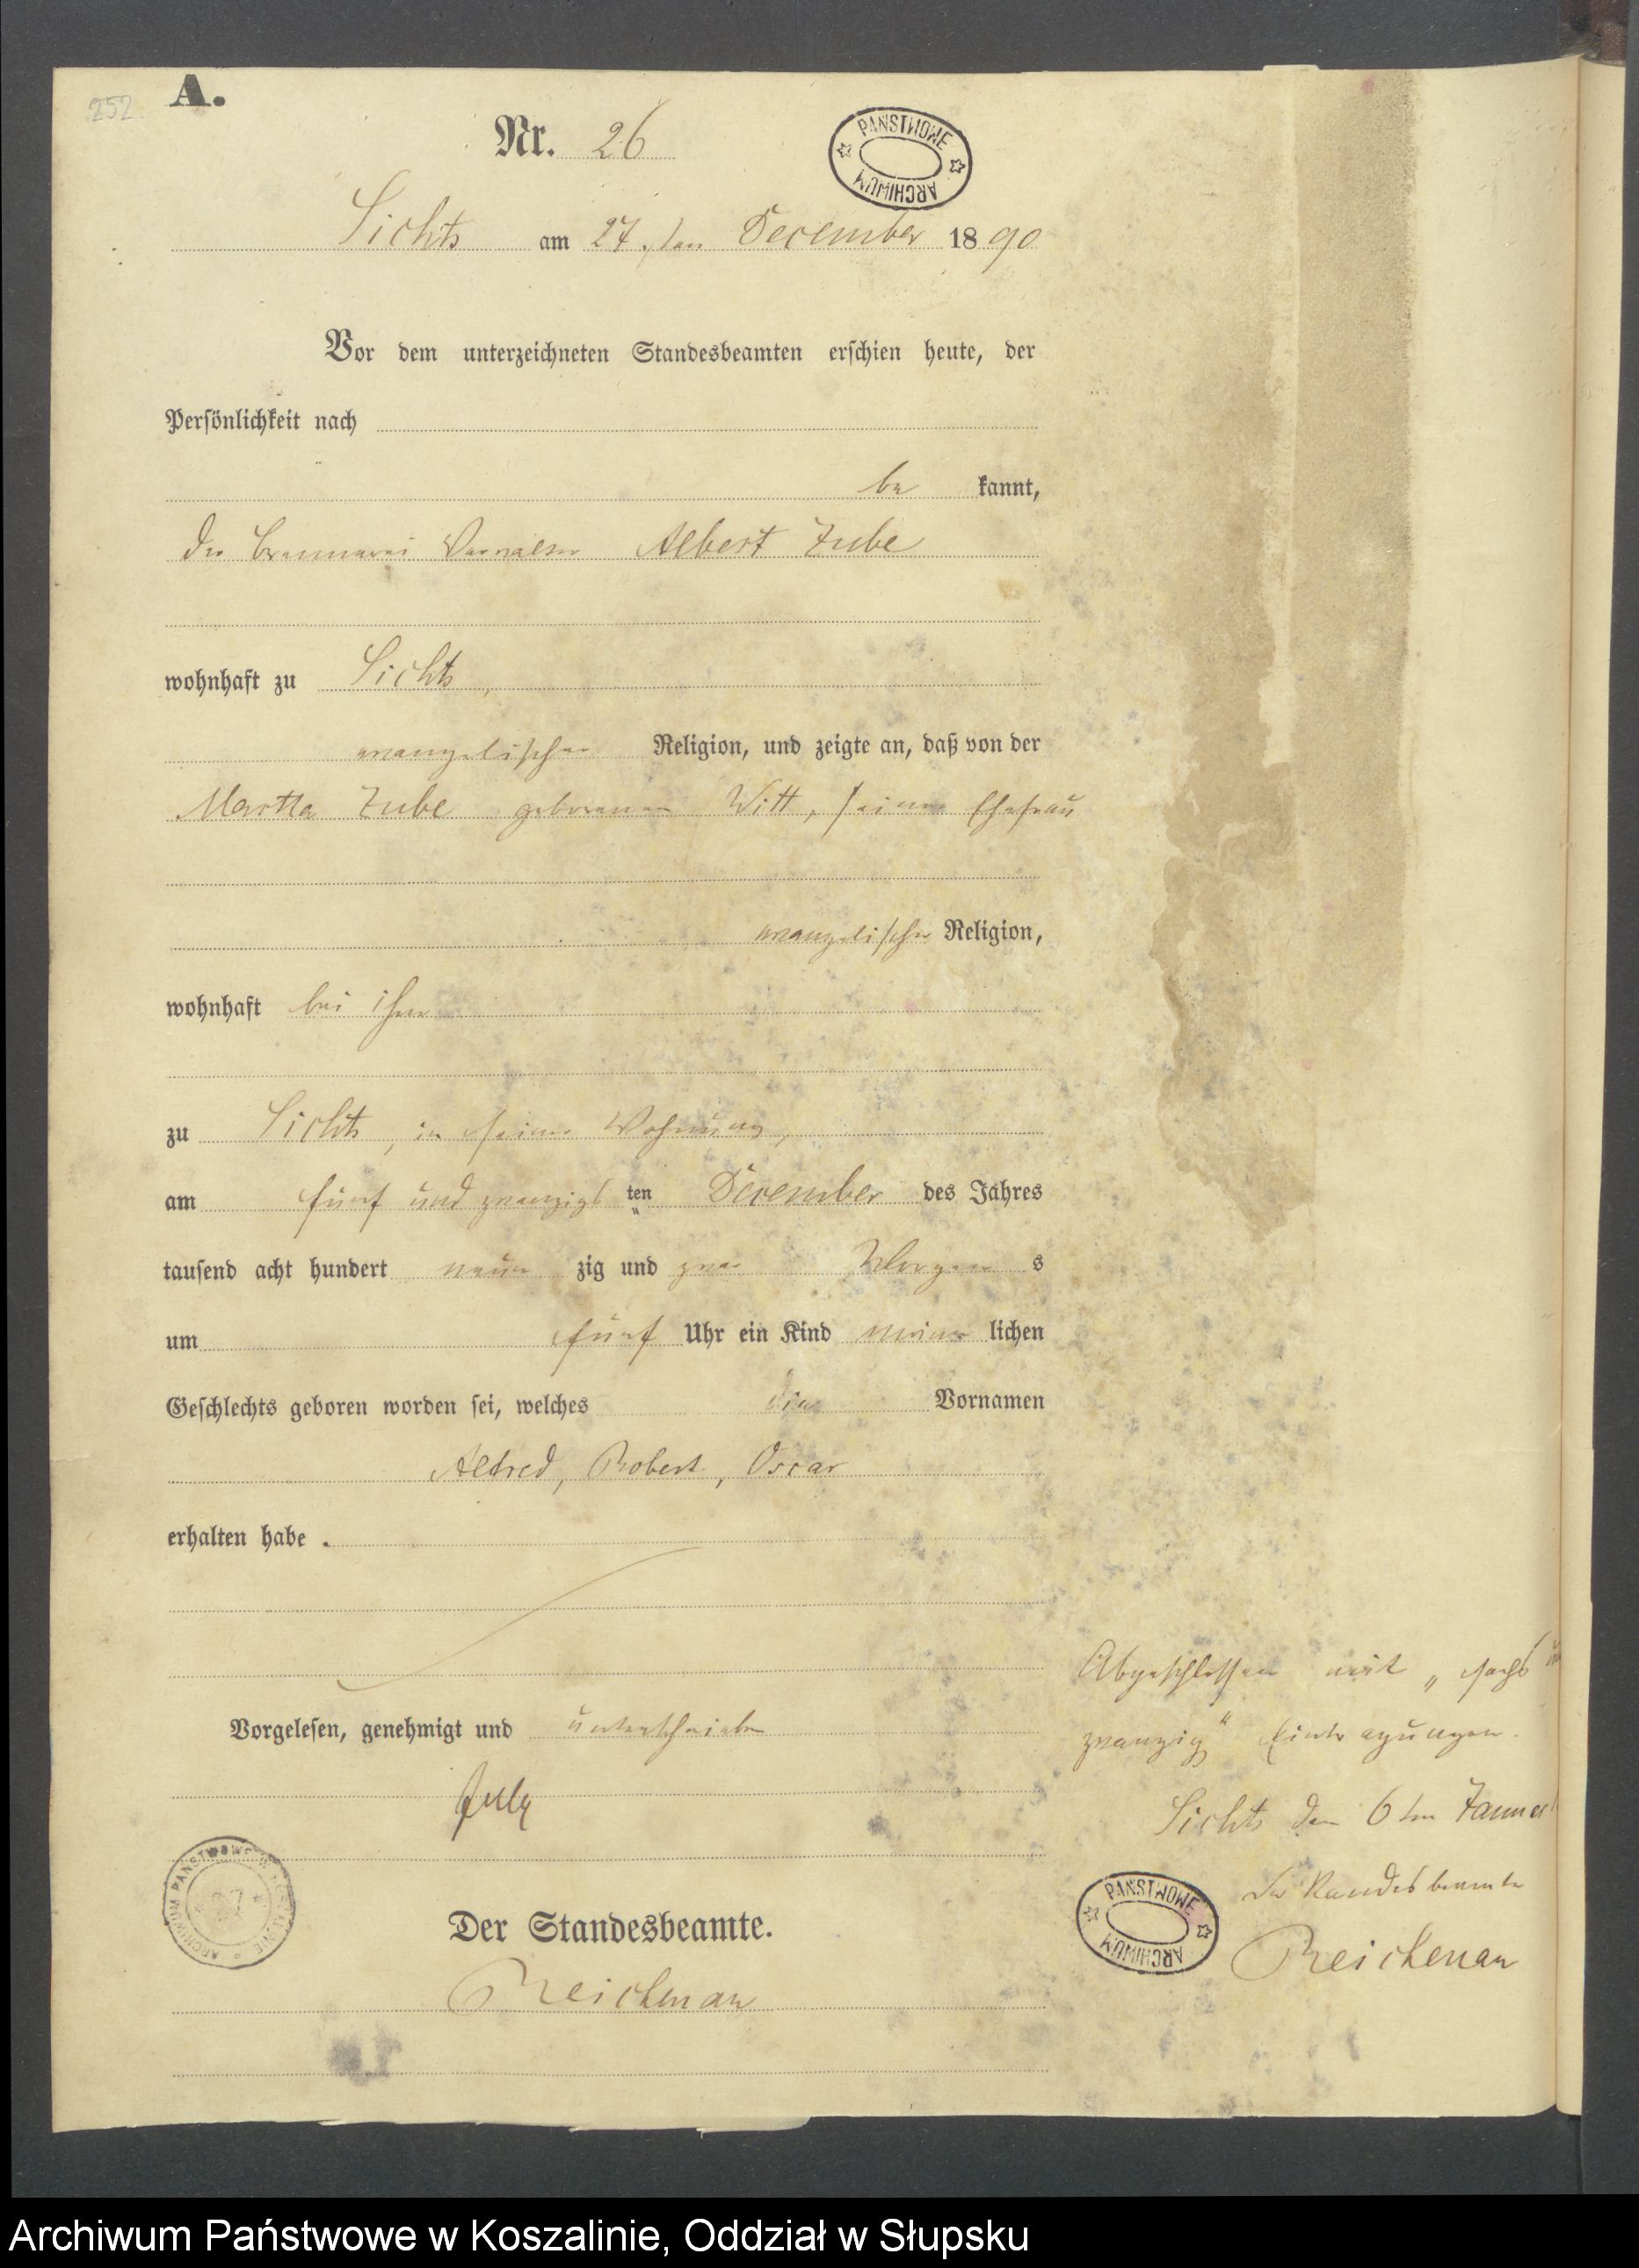 252
A.
Nr. 26
PAŃSTWOWE ARCHIWUM
Lichts am 27. ten December 1890
Vor dem unterzeichneten Standesbeamten erschien heute, der
Persönlichkeit nach
be kannt,
der Brennerei Verwalter Albert Zube
wohnhaft zu Lichts,
evangelischer Religion, und zeigte an, daß von der
Martha Zube geborenen Witt, seiner Ehefrau
evangelischer Religion,
wohnhaft bei ihm
zu Lichts, in seiner Wohnung,
am fünf und zwanzigsten December des Jahres
tausend acht hundert neun zig und zwar Morgens
um fünf Uhr ein Kind männlichen
Geschlechts geboren worden sei, welches die Vornamen
Alfred, Robert, Oscar
erhalten habe.
Vorgelesen, genehmigt und unterschrieben
Zube
Der Standesbeamte.
Reichenau
Abgeschlossen mit „sechs und
zwanzig“ Eintragungen.
Lichts den 6ten Januar
Der Standesbeamte
PAŃSTWOWE ARCHIWUM
Reichenau
Archiwum Państwowe w Koszalinie, Oddział w Słupsku